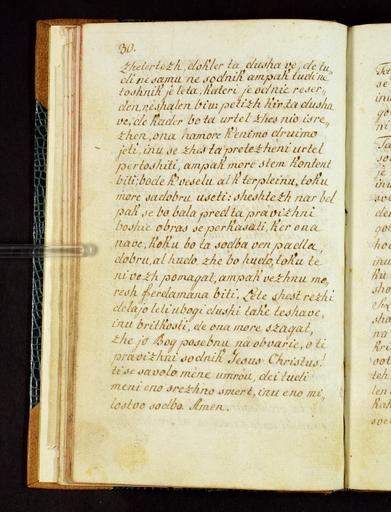 30.
zhetertezh, dokler ta dusha ve, de tu
di ne samu ne sodnik ampak tudi ne
toshnik je leta, kateri je od nie reser-
den, reshalen biu: petizh kir ta dusha
ve, de kader bo ta urtel zhes nio isre,
zhen, ona namore k'enimo druimo
jeti, inu se zhes ta pretezheni urtel
pertoshiti, ampak more stem kontent
biti; bode k'veselu al k'terpleinu, toku
more sa dobru useti: sheshtezh nar bel
pak se bo bala pred ta pravizhni
boshie obras se perkasati, ker ona
na ve, koku bo ta sodba ven padla
dobru, al hudo, zhe bo hudo, toku te
ni vezh pomagat, ampak vezhnu mo,
resh ferdamana biti. Lete shest rezhi
delajo leti ubogi dushi take teshave,
inu britkosti, de ona more szagat,
zhe jo Bog posebnu na obvarie, o ti
pravizhni sodnik Jesus Christus!
ti se sa volo mene umrou, dei tudi
meni eno srezhno smert, inu eno mi,
lostvo sodbo. Amen.